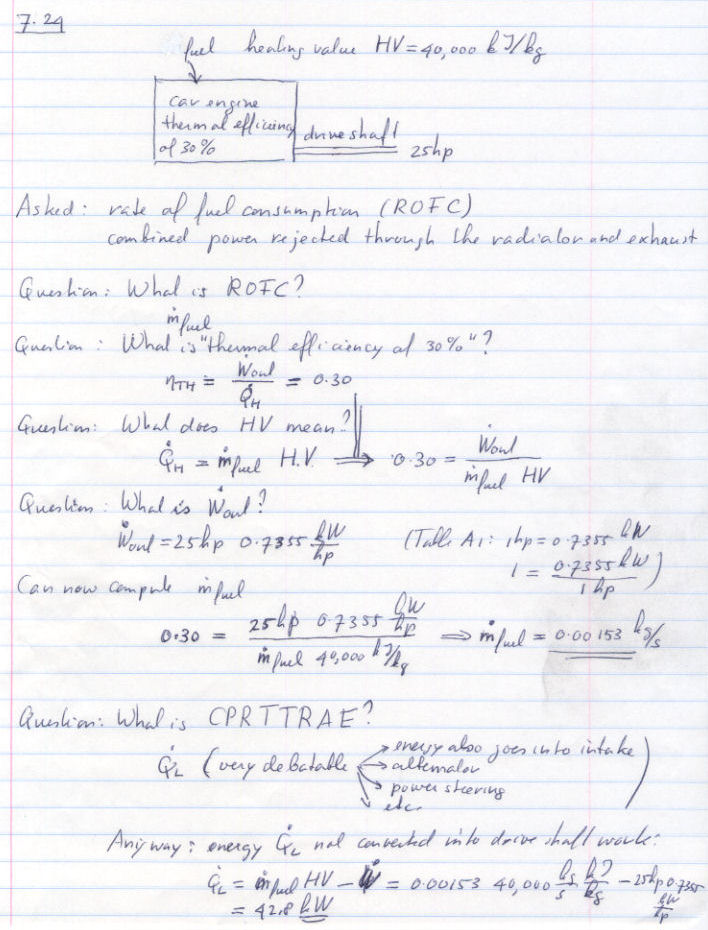 7.24
fuel heating value HV = 40,000 kJ/kg
car engine
thermal efficiency
of 30%
driveshaft
25hp
Asked: rate of fuel consumption (ROFC)
combined power rejected through the radiator and exhaust
Question: What is ROFC?
ṁfuel
Question: What is "thermal efficiency of 30%"?
ηTH ≡ Ẇout / Q̇H = 0.30
Question: What does HV mean?
Q̇H = ṁfuel H.V. ⟹ 0.30 = Ẇout / ṁfuel HV
Question: What is Ẇout?
Ẇout = 25hp 0.7355 kW/hp (Table A1: 1hp = 0.7355 kW
1 = 0.7355 kW / 1 hp)
Can now compute ṁfuel
0.30 = 25hp 0.7355 kW/hp / ṁfuel 40,000 kJ/kg ⟹ ṁfuel = 0.00153 kg/s
Question: What is CPRTTRAE?
Q̇L (very debatable → energy also goes into intake
→ alternator
→ power steering
→ etc.)
Anyway: energy Q̇L not converted into drive shaft work:
Q̇L = ṁfuel HV − Ẇ = 0.00153 40,000 kg/s kJ/kg − 25hp 0.7355 kW/hp
= 42.8 kW